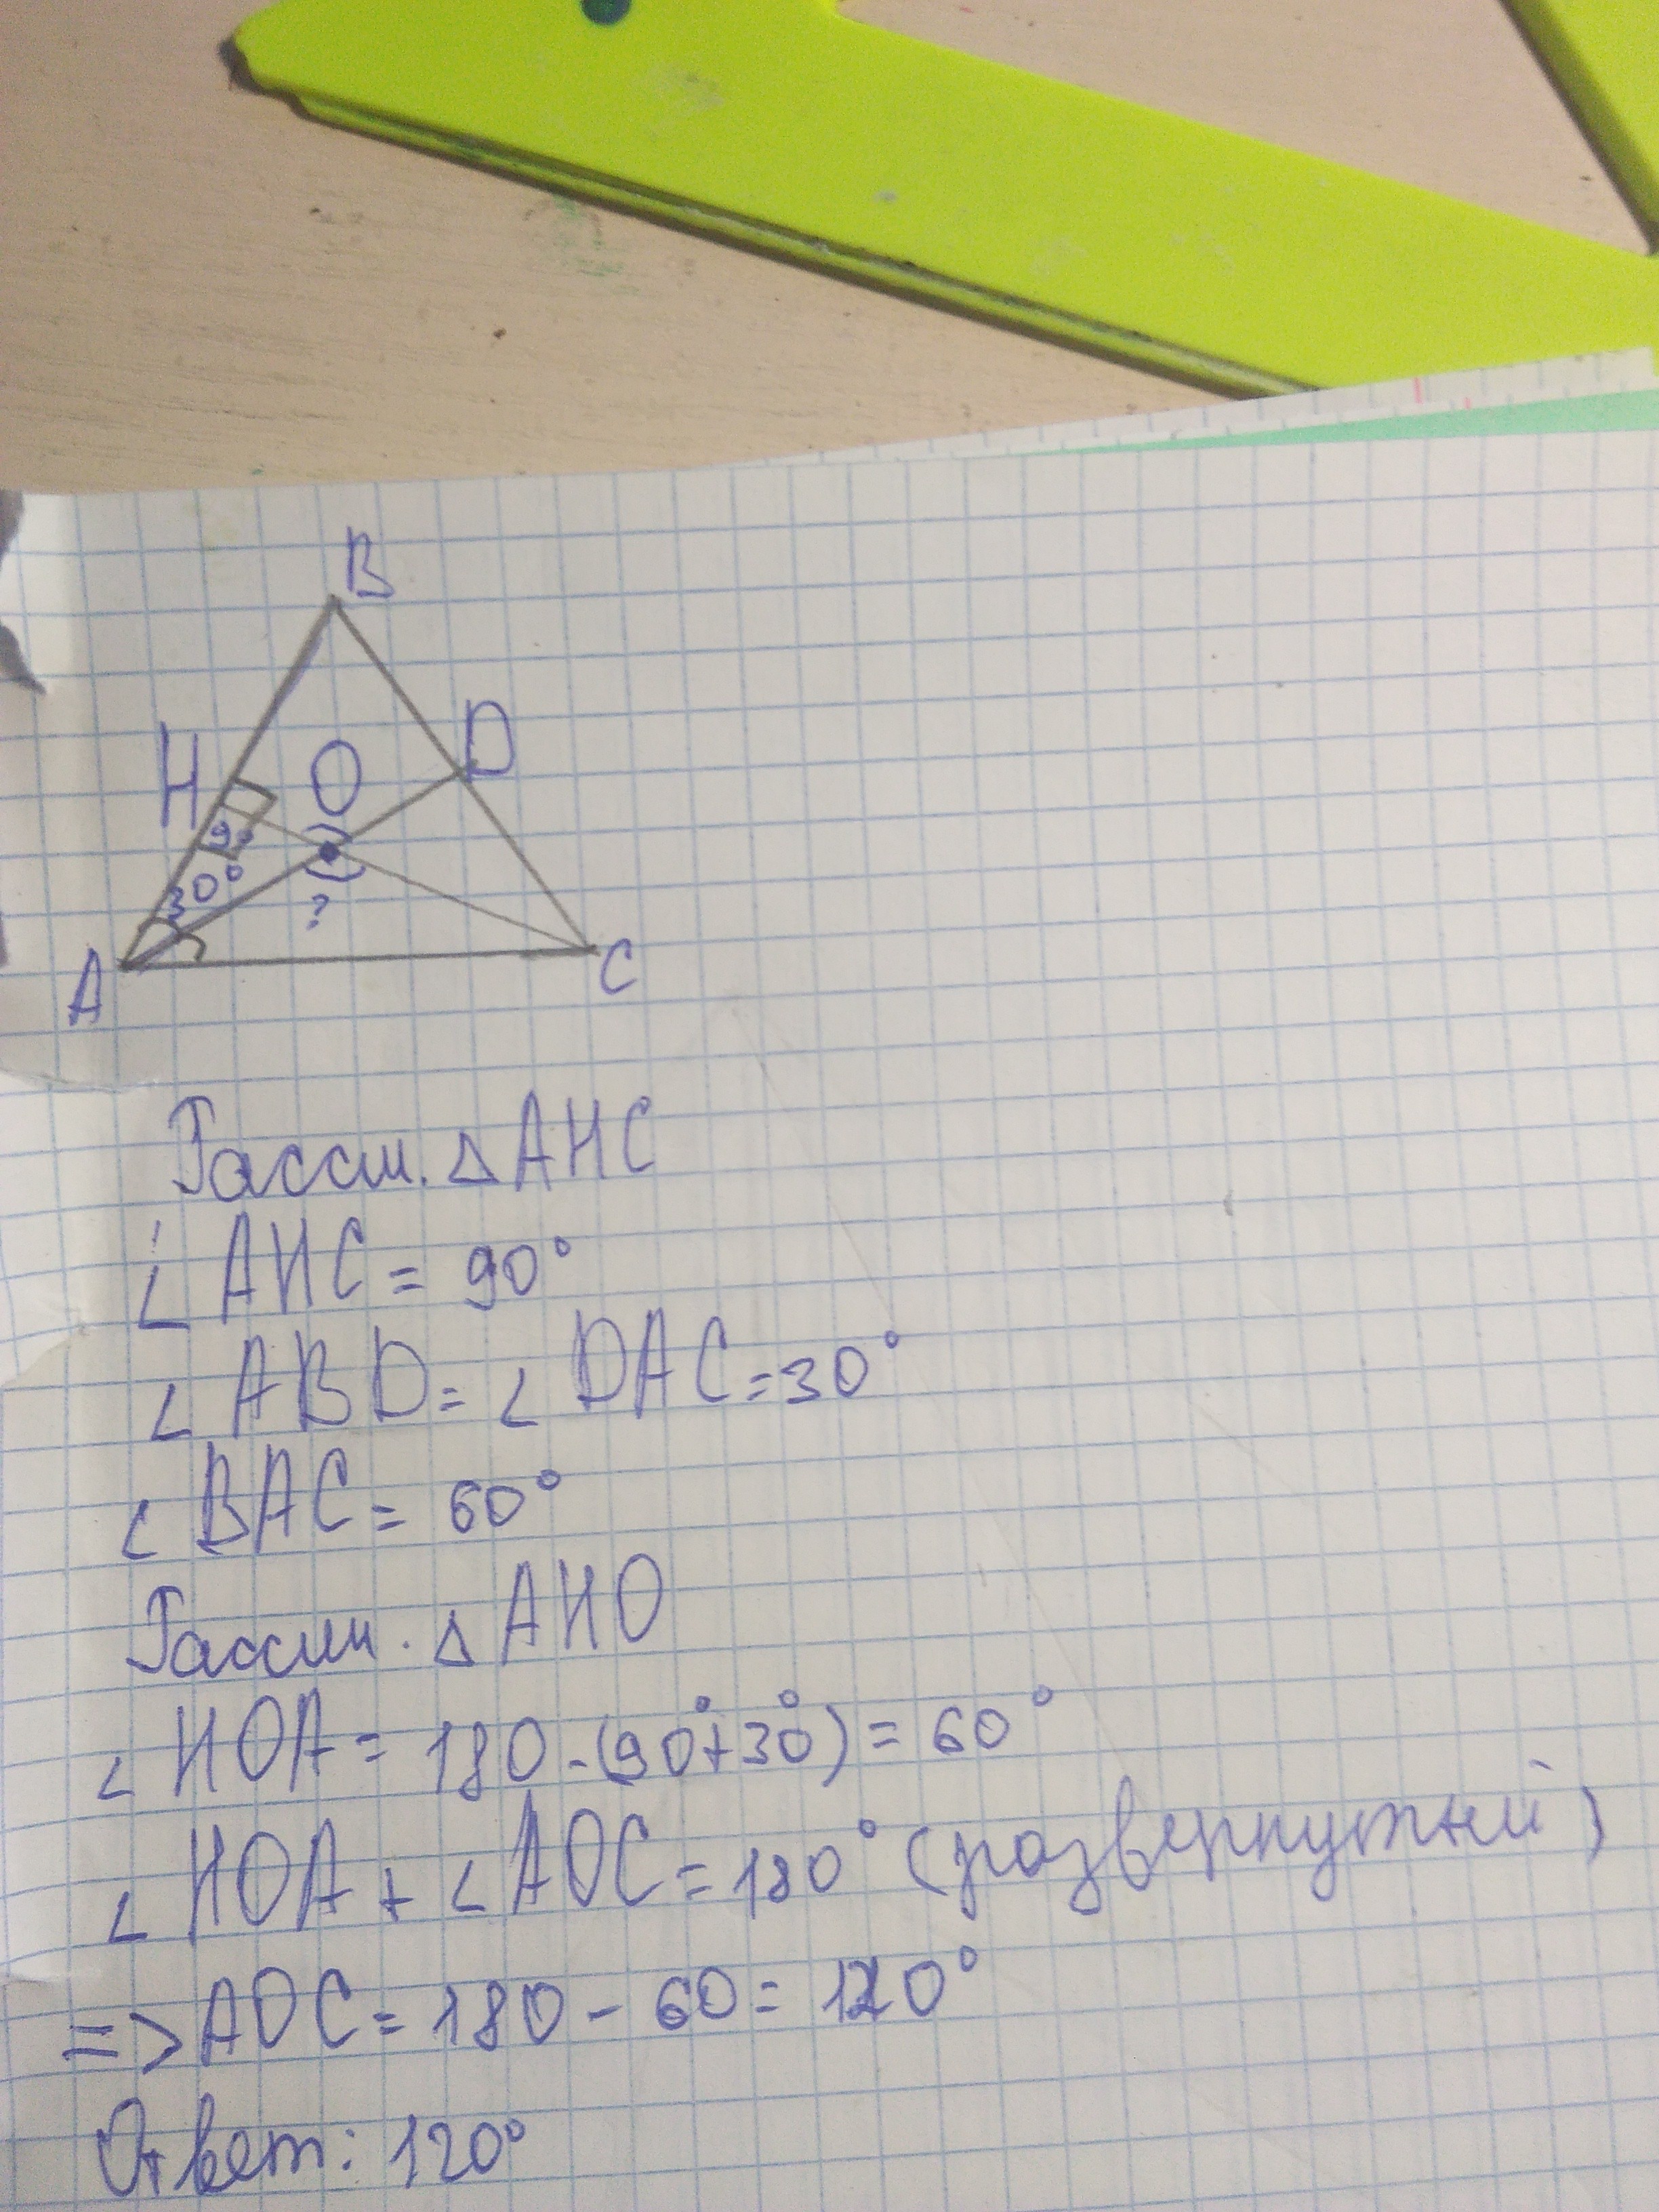 B
H
O
D
90
30°
?
A
C
Рассм. △ AHC
∠ AHC = 90°
∠ ABD = ∠ DAC = 30°
∠ BAC = 60°
Рассм. △ AHO
∠ HOA = 180 - (90°+30°) = 60°
∠ HOA + ∠ AOC = 180° (развернутый)
=> AOC = 180 - 60 = 120°
Ответ: 120°